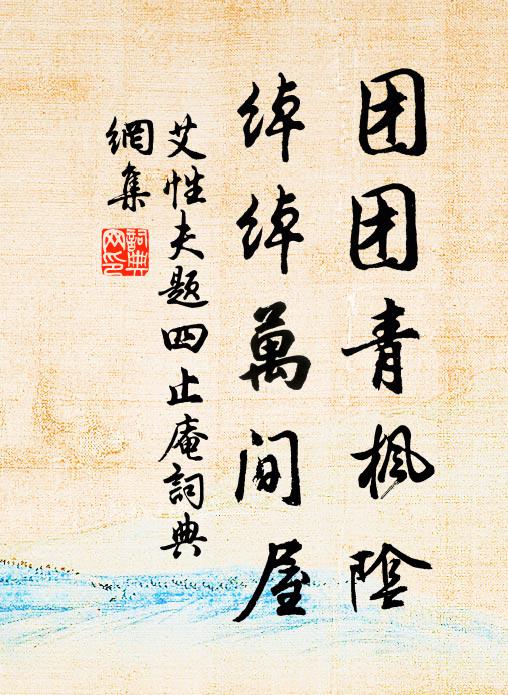 团团青枫阴
绰绰萬间屋
艾性夫题四止庵词典
網集
詞典
网印